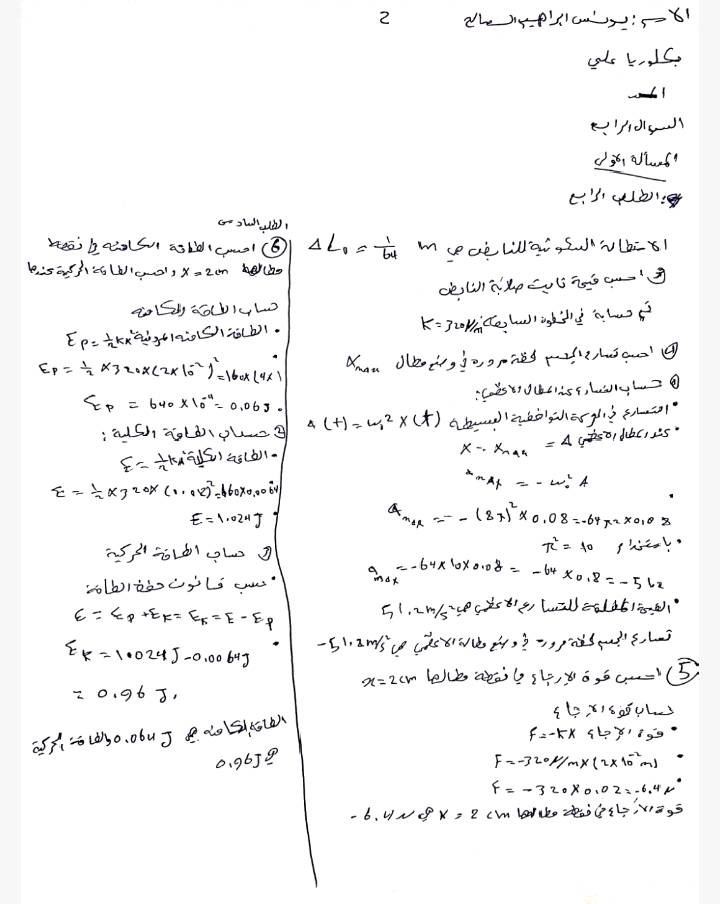 2
الاسم: يونس ابراهيم الصالح
بكلوريا علمي
السؤال الرابع
المسألة الأولى
الطلب الرابع
الاستطالة السكونية للنابض هي ΔL₀ = 1/64 m
③ احسب قيمة ثابت صلابة النابض
تم حسابه في الخطوة السابعة K=320 N/m
④ احسب تسارع الجسم لحظة مروره في وضع مطال Xmax
① حساب التسارع عند المطال الأعظمي:
• التسارع في الحركة التوافقية البسيطة a(t) = ω₀² X(t)
• عند المطال الأعظمي X = Xmax = A
amax = - ω₀² A
amax = - (8π)² × 0.08 = -64π² × 0.08
• باستخدام π² = 10
amax = -64 × 10 × 0.08 = -64 × 0.8 = -51.2
• القيمة المطلقة للتسارع الأعظمي هي 51.2 m/s²
تسارع الجسم لحظة مروره في وضع مطاله الأعظمي هي -51.2 m/s²
⑤ احسب قوة الإرجاع في نقطة مطالها x=2cm
لحساب قوة الإرجاع
• قوة الإرجاع F=-KX
• F=-320 N/m × (2×10⁻² m)
• F = -320 × 0.02 = -6.4 N
قوة الإرجاع في نقطة مطالها X = 2 cm هي -6.4 N
الطلب السادس
⑥ احسب الطاقة الكامنة في نقطة
مطالها X=2cm واحسب الطاقة الحركية عندها
حساب الطاقة الكامنة
• الطاقة الكامنة المرونية Ep = ½ Kx²
Ep = ½ × 320 × (2×10⁻²)² = 160 × (4×1
Ep = 640 × 10⁻⁴ = 0.06 J.
② حساب الطاقة الكلية:
• الطاقة الكلية E = ½ KA²
E = ½ × 320 × (0.08)² = 160 × 0.0064
• E = 1.024 J
③ حساب الطاقة الحركية
• حسب قانون حفظ الطاقة
E = Ep + EK = EK = E - Ep
EK = 1.024 J - 0.0064 J
= 0.96 J.
الطاقة الكامنة هي 0.064 J والطاقة الحركية
هي 0.96 J